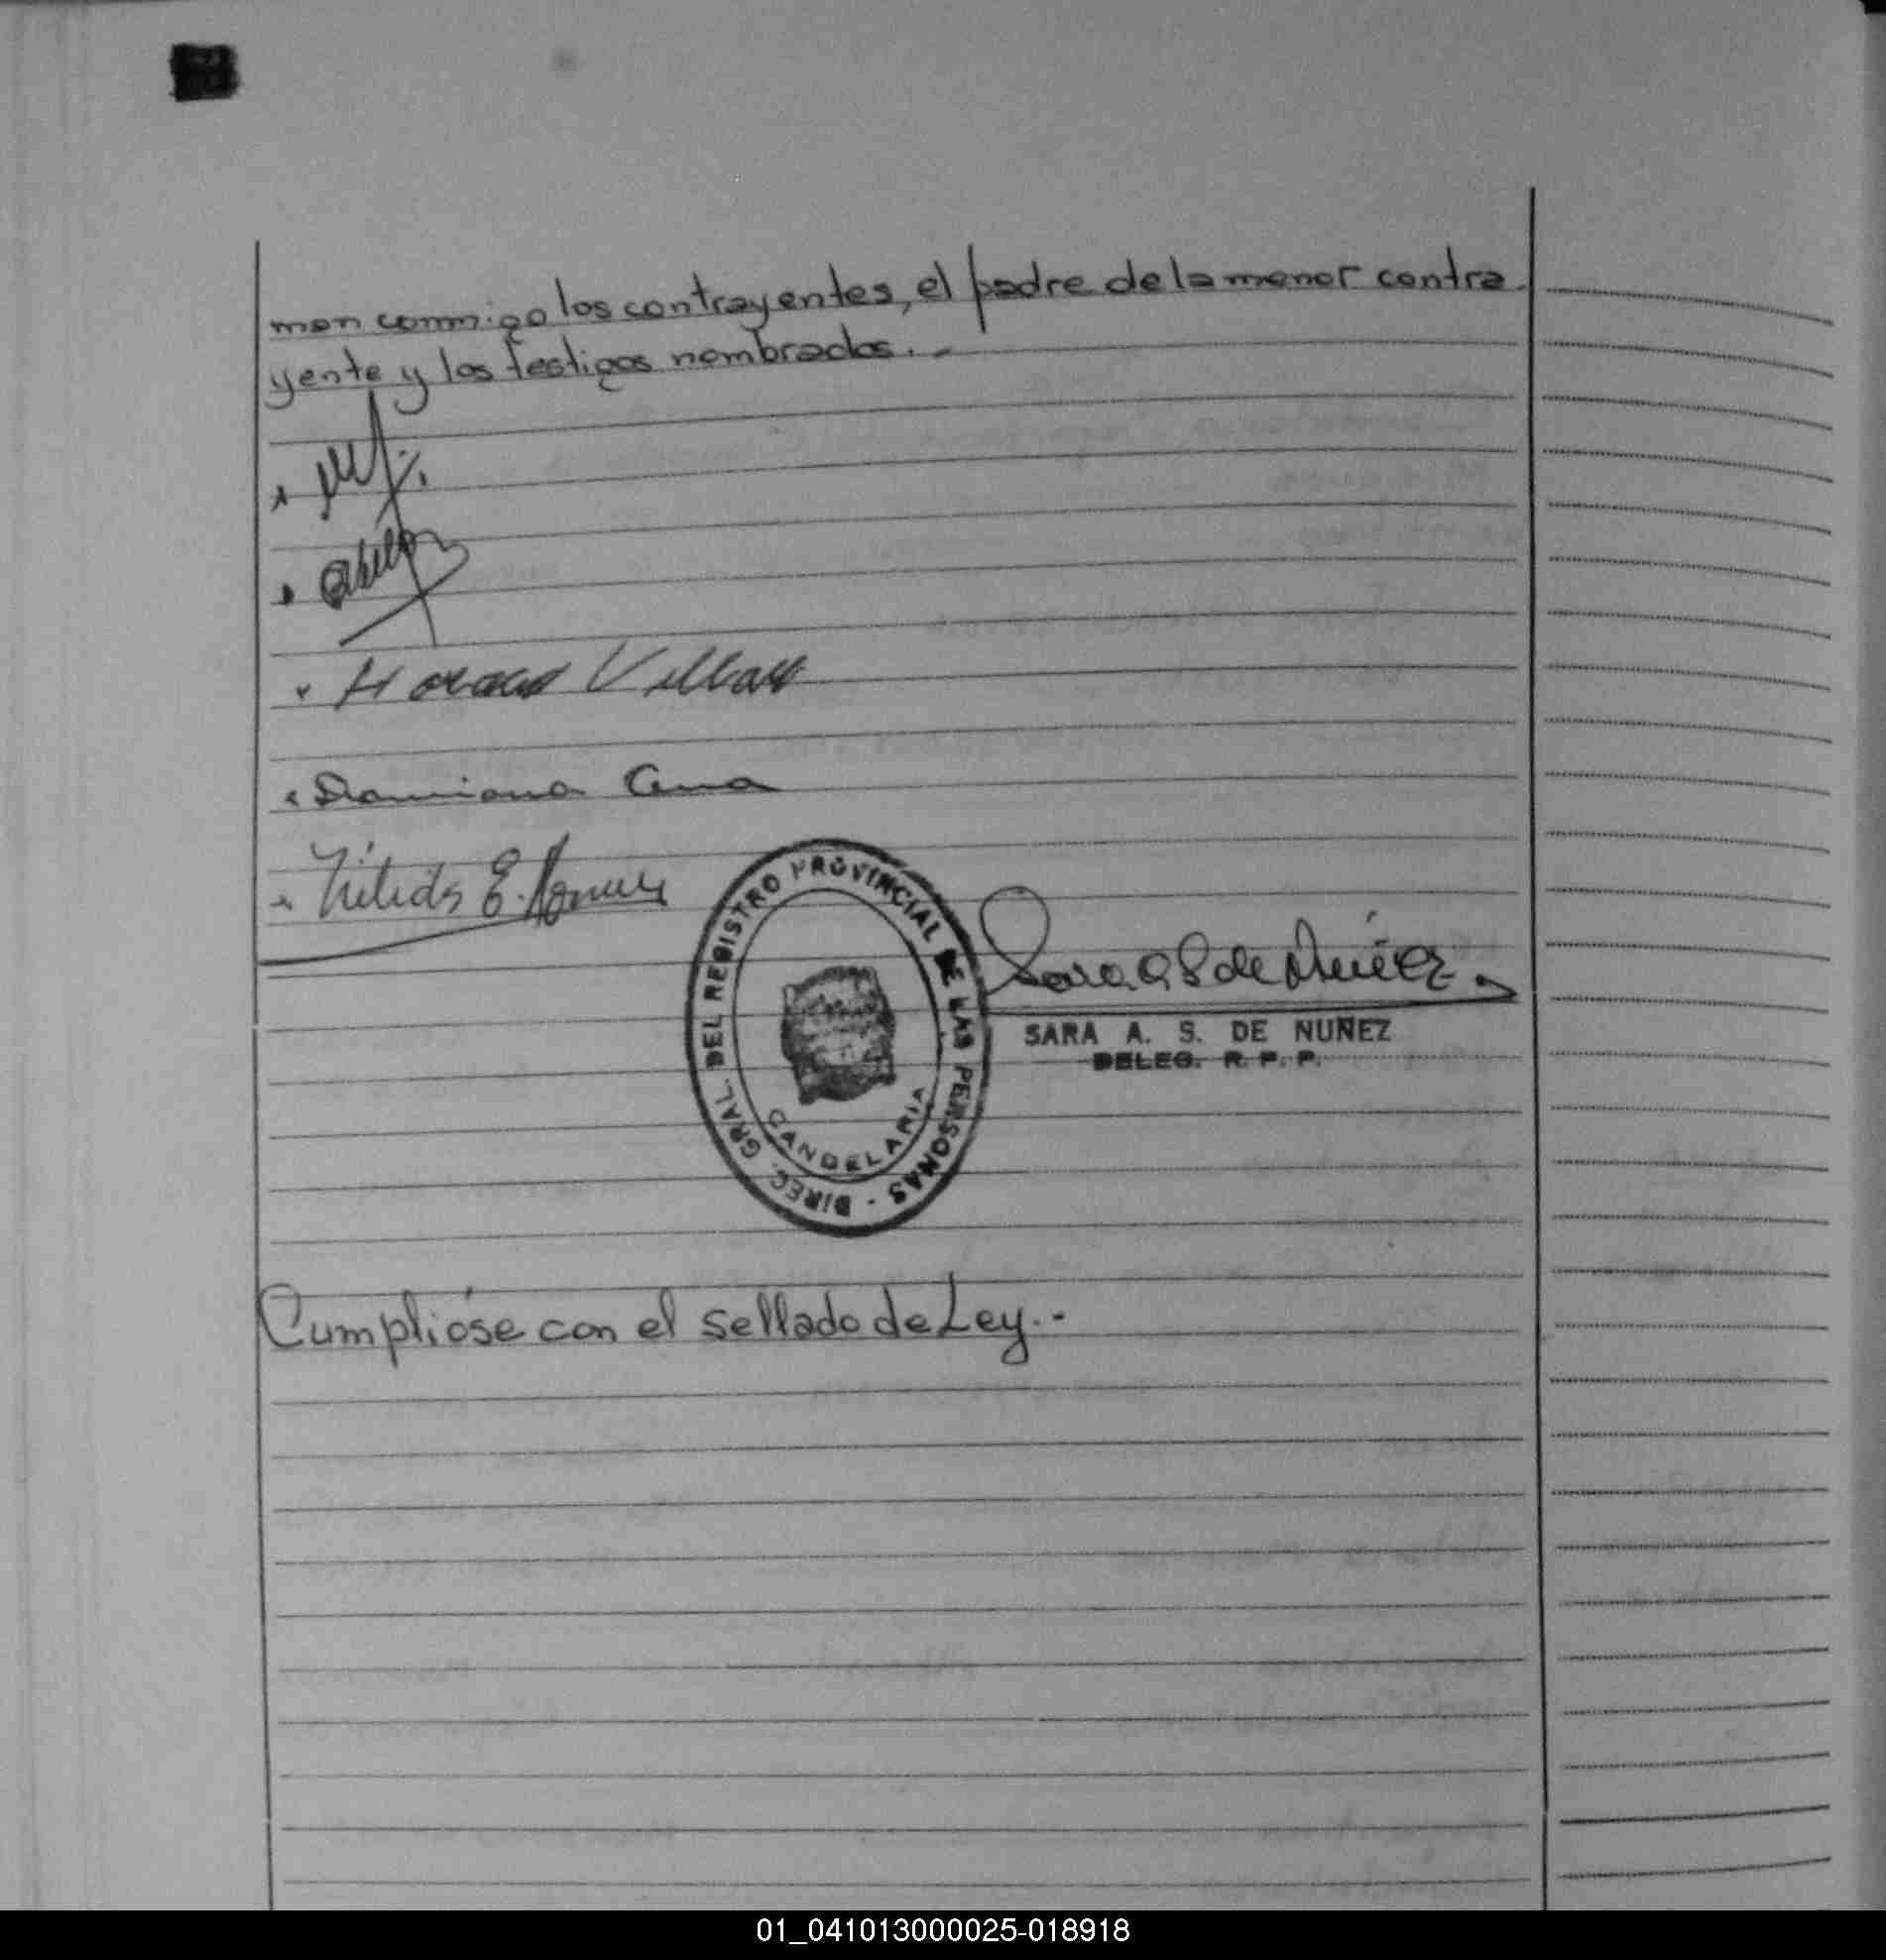 man conmigo los contrayentes, el padre de la menor contra
yente y los testigos nombrados. -
Horacio Villar
Damiana
E.
DIREC. GRAL. DEL REGISTRO PROVINCIAL DE LAS PERSONAS -
CANDELARIA
Sara A S de Nuñez
SARA A. S. DE NUÑEZ
DELEG. R. P. P.
Cumplióse con el sellado de Ley. -
01_041013000025-018918